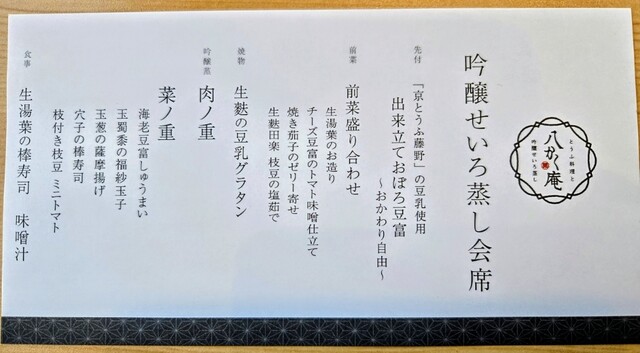 とうふ料理と
八かく庵
吟醸せいろ蒸し
吟醸せいろ蒸し会席
先付
「京とうふ藤野」の豆乳使用
出来立ておぼろ豆富
〜おかわり自由〜
前菜
前菜盛り合わせ
生湯葉のお造り
チーズ豆富のトマト味噌仕立て
焼き茄子のゼリー寄せ
生麩田楽 枝豆の塩茹で
焼物
生麩の豆乳グラタン
吟醸蒸
肉ノ重
菜ノ重
海老豆富しゅうまい
玉蜀黍の福紗玉子
玉葱の薩摩揚げ
穴子の棒寿司
枝付き枝豆 ミニトマト
食事
生湯葉の棒寿司 味噌汁